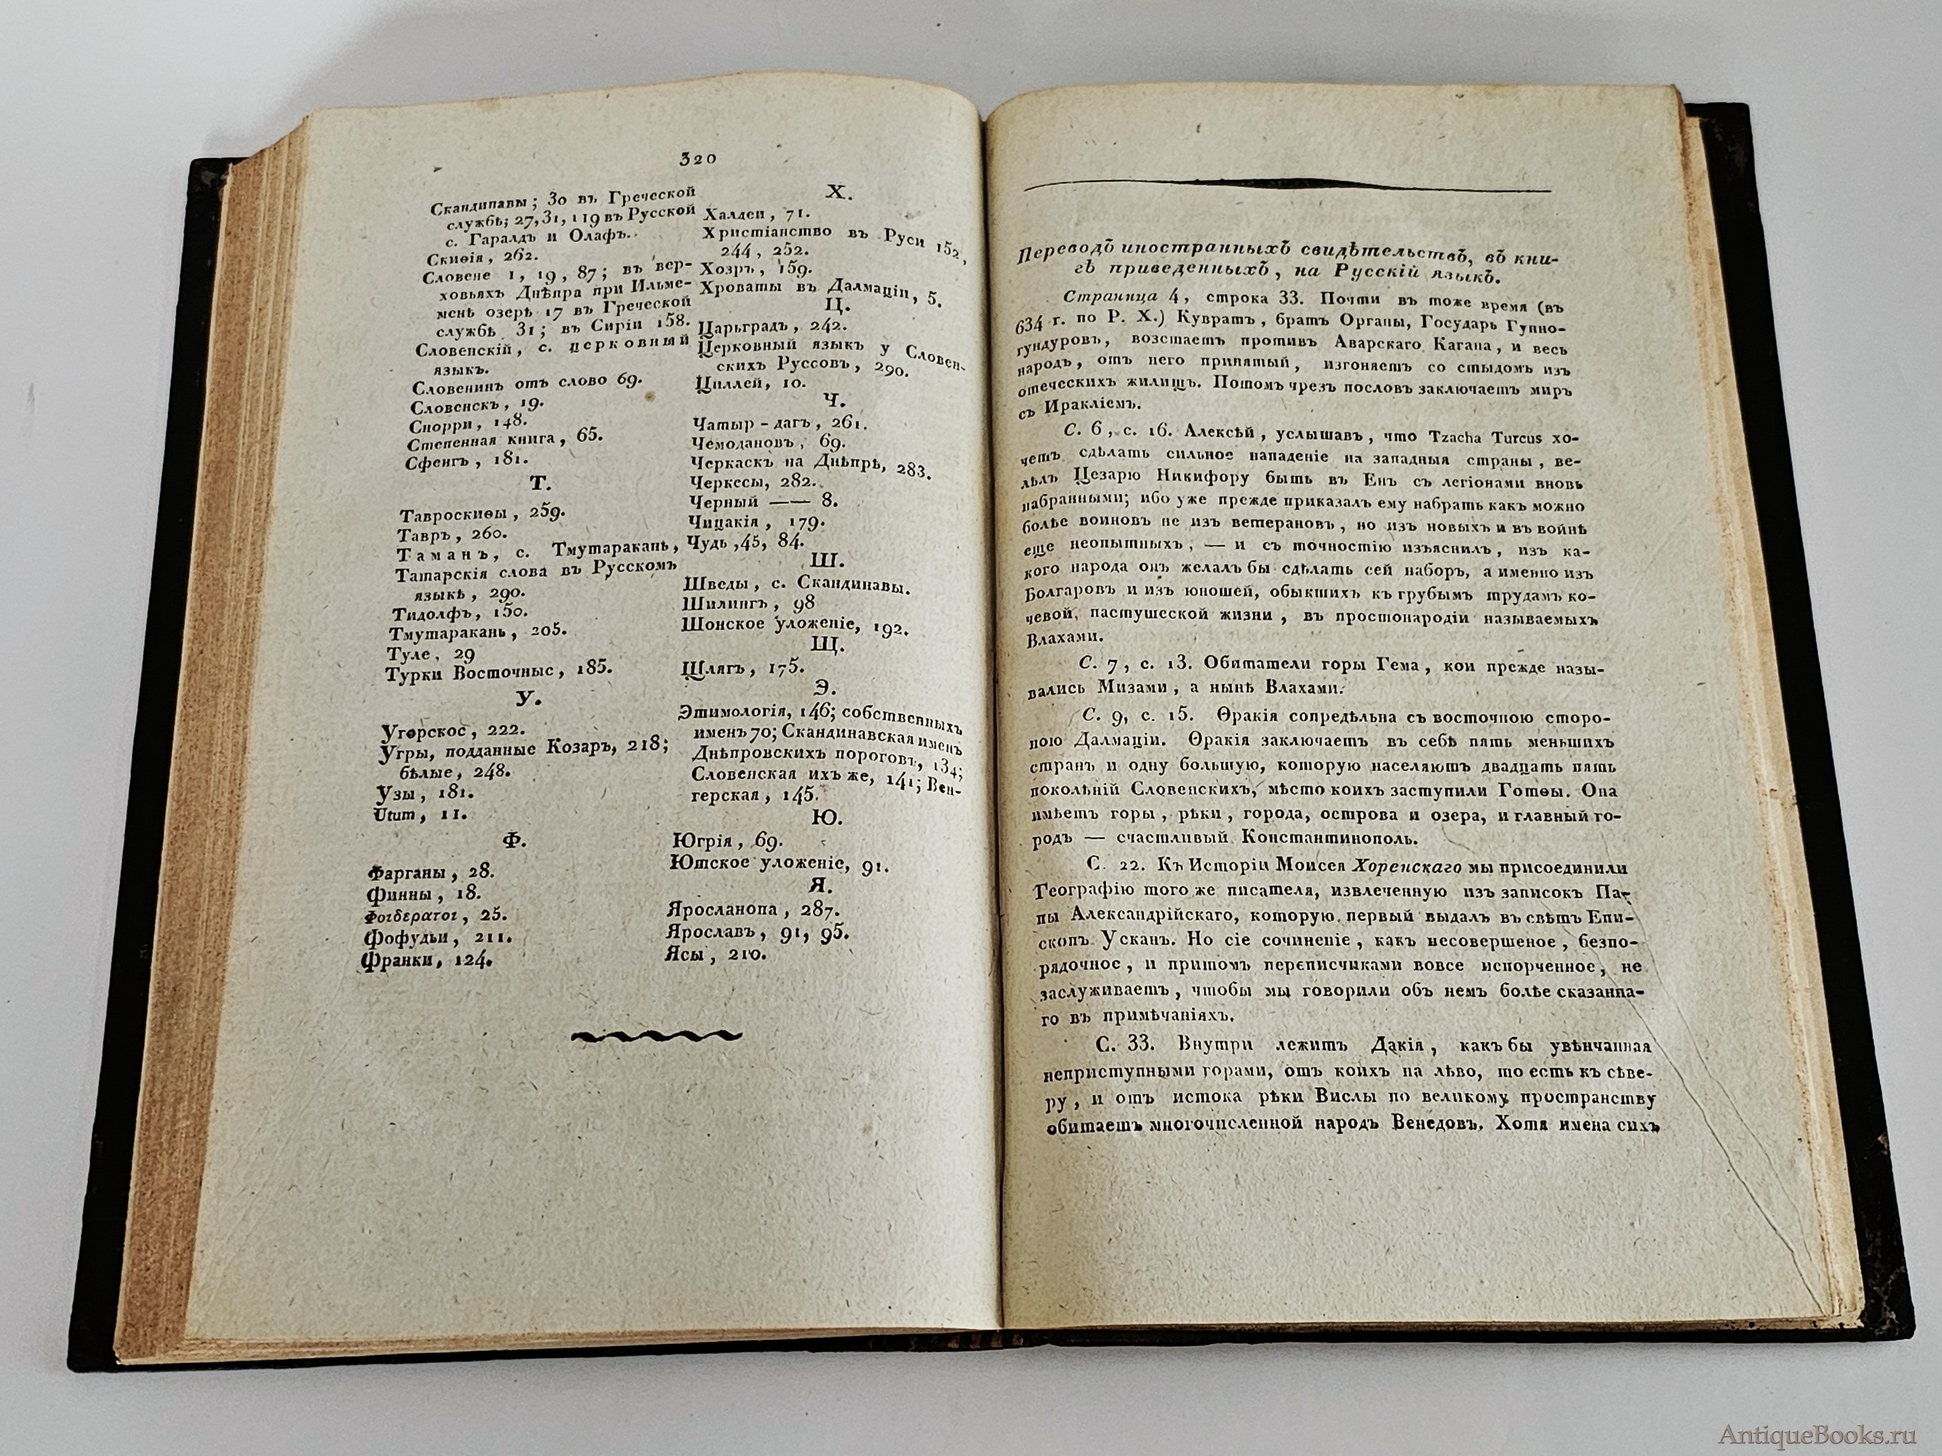 320
Скандинавы; 30 въ Греческой
службѣ; 27, 31, 119 въ Русской
с. Гаралд и Олаф.
Скиѳія, 262.
Словене 1, 19, 87; въ вер-
ховьяхъ Днѣпра при Ильме-
менѣ озерѣ 17 въ Греческой
службѣ 31; въ Сиріи 158.
Словенскій, с. церковный
языкъ.
Словенинъ отъ слово 69.
Словенскъ, 19.
Снорри, 148.
Степенная книга, 65.
Сфенгъ, 181.
Т.
Тавроскиѳы, 259.
Тавръ, 260.
Таманъ, с. Тмутараканѣ,
Татарскія слова въ Русскомъ
языкѣ, 290.
Тидолфъ, 150.
Тмутаракань, 205.
Туле, 29
Турки Восточные, 185.
У.
Угорское, 222.
Угры, подданные Козаръ, 218;
бѣлые, 248.
Узы, 181.
Utum, 11.
Ф.
Фарганы, 28.
Финны, 18.
Φοιδερατοι, 25.
Фофудьи, 211.
Франки, 124.
Х.
Халдеи, 71.
Христіанство въ Руси 152,
244, 252.
Хозръ, 159.
Хроваты въ Далмаціи, 5.
Ц.
Царьградъ, 242.
Церковный языкъ у Словен-
скихъ Руссовъ, 290.
Циллей, 10.
Ч.
Чатыр-дагъ, 261.
Чемодановъ, 69.
Черкаскъ на Днѣпрѣ, 283.
Черкесы, 282.
Черный —— 8.
Чицакія, 179.
Чудь, 45, 84.
Ш.
Шведы, с. Скандинавы.
Шилингъ, 98
Шонское уложеніе, 192.
Щ.
Щлягъ, 175.
Э.
Этимологія, 146; собственныхъ
именъ 70; Скандинавская именъ
Днѣпровскихъ пороговъ, 134;
Словенская ихъ же, 141; Вен-
герская, 145.
Ю.
Югрія, 69.
Ютское уложеніе, 91.
Я.
Яросланопа, 287.
Ярославъ, 91, 95.
Ясы, 210.
Переводъ иностранныхъ свидѣтельствъ, въ кни-
гѣ приведенныхъ, на Русскій языкъ.
Страница 4, строка 33. Почти въ тоже время (въ
634 г. по Р. Х.) Кувратъ, братъ Органы, Государь Гунно-
гундуровъ, возстаетъ противъ Аварскаго Кагана, и весь
народъ, отъ него принятый, изгоняетъ со стыдомъ изъ
отеческихъ жилищъ. Потомъ чрезъ пословъ заключаетъ миръ
съ Иракліемъ.
С. 6, с. 16. Алексѣй, услышавъ, что Tzacha Turcus хо-
четъ сдѣлать сильное нападеніе на западныя страны, ве-
лѣлъ Цезарю Никифору быть въ Енъ съ легіонами вновь
набранными; ибо уже прежде приказалъ ему набрать какъ можно
болѣе воиновъ не изъ ветерановъ, но изъ новыхъ и въ войнѣ
еще неопытныхъ, — и съ точностію изъяснилъ, изъ ка-
кого народа онъ желалъ бы сдѣлать сей наборъ, а именно изъ
Болгаровъ и изъ юношей, обыкшихъ къ грубымъ трудамъ ко-
чевой, пастушеской жизни, въ простонародіи называемыхъ
Влахами.
С. 7, с. 13. Обитатели горы Гема, кои прежде назы-
вались Мизами, а нынѣ Влахами.
С. 9, с. 15. Ѳракія сопредѣльна съ восточною сторо-
ною Далмаціи. Ѳракія заключаетъ въ себѣ пять меньшихъ
странъ и одну большую, которую населяютъ двадцать пять
поколѣній Словенскихъ, мѣсто коихъ заступили Готѳы. Она
имѣетъ горы, рѣки, города, острова и озера, и главный го-
родъ — счастливый Константинополь.
С. 22. Къ Исторіи Моисея Хоренскаго мы присоединили
Географію того же писателя, извлеченную изъ записокъ Па-
пы Александрійскаго, которую первый выдалъ въ свѣтъ Епи-
скопъ Усканъ. Но сіе сочиненіе, какъ несовершеное, безпо-
рядочное, и притомъ переписчиками вовсе испорченное, не
заслуживаетъ, чтобы мы говорили объ немъ болѣе сказанна-
го въ примѣчаніяхъ.
С. 33. Внутри лежитъ Дакія, какъ бы увѣнчанная
неприступными горами, отъ коихъ на лѣво, то есть къ сѣве-
ру, и отъ истока рѣки Вислы по великому пространству
обитаетъ многочисленной народъ Венедовъ. Хотя имена сихъ
AntiqueBooks.ru